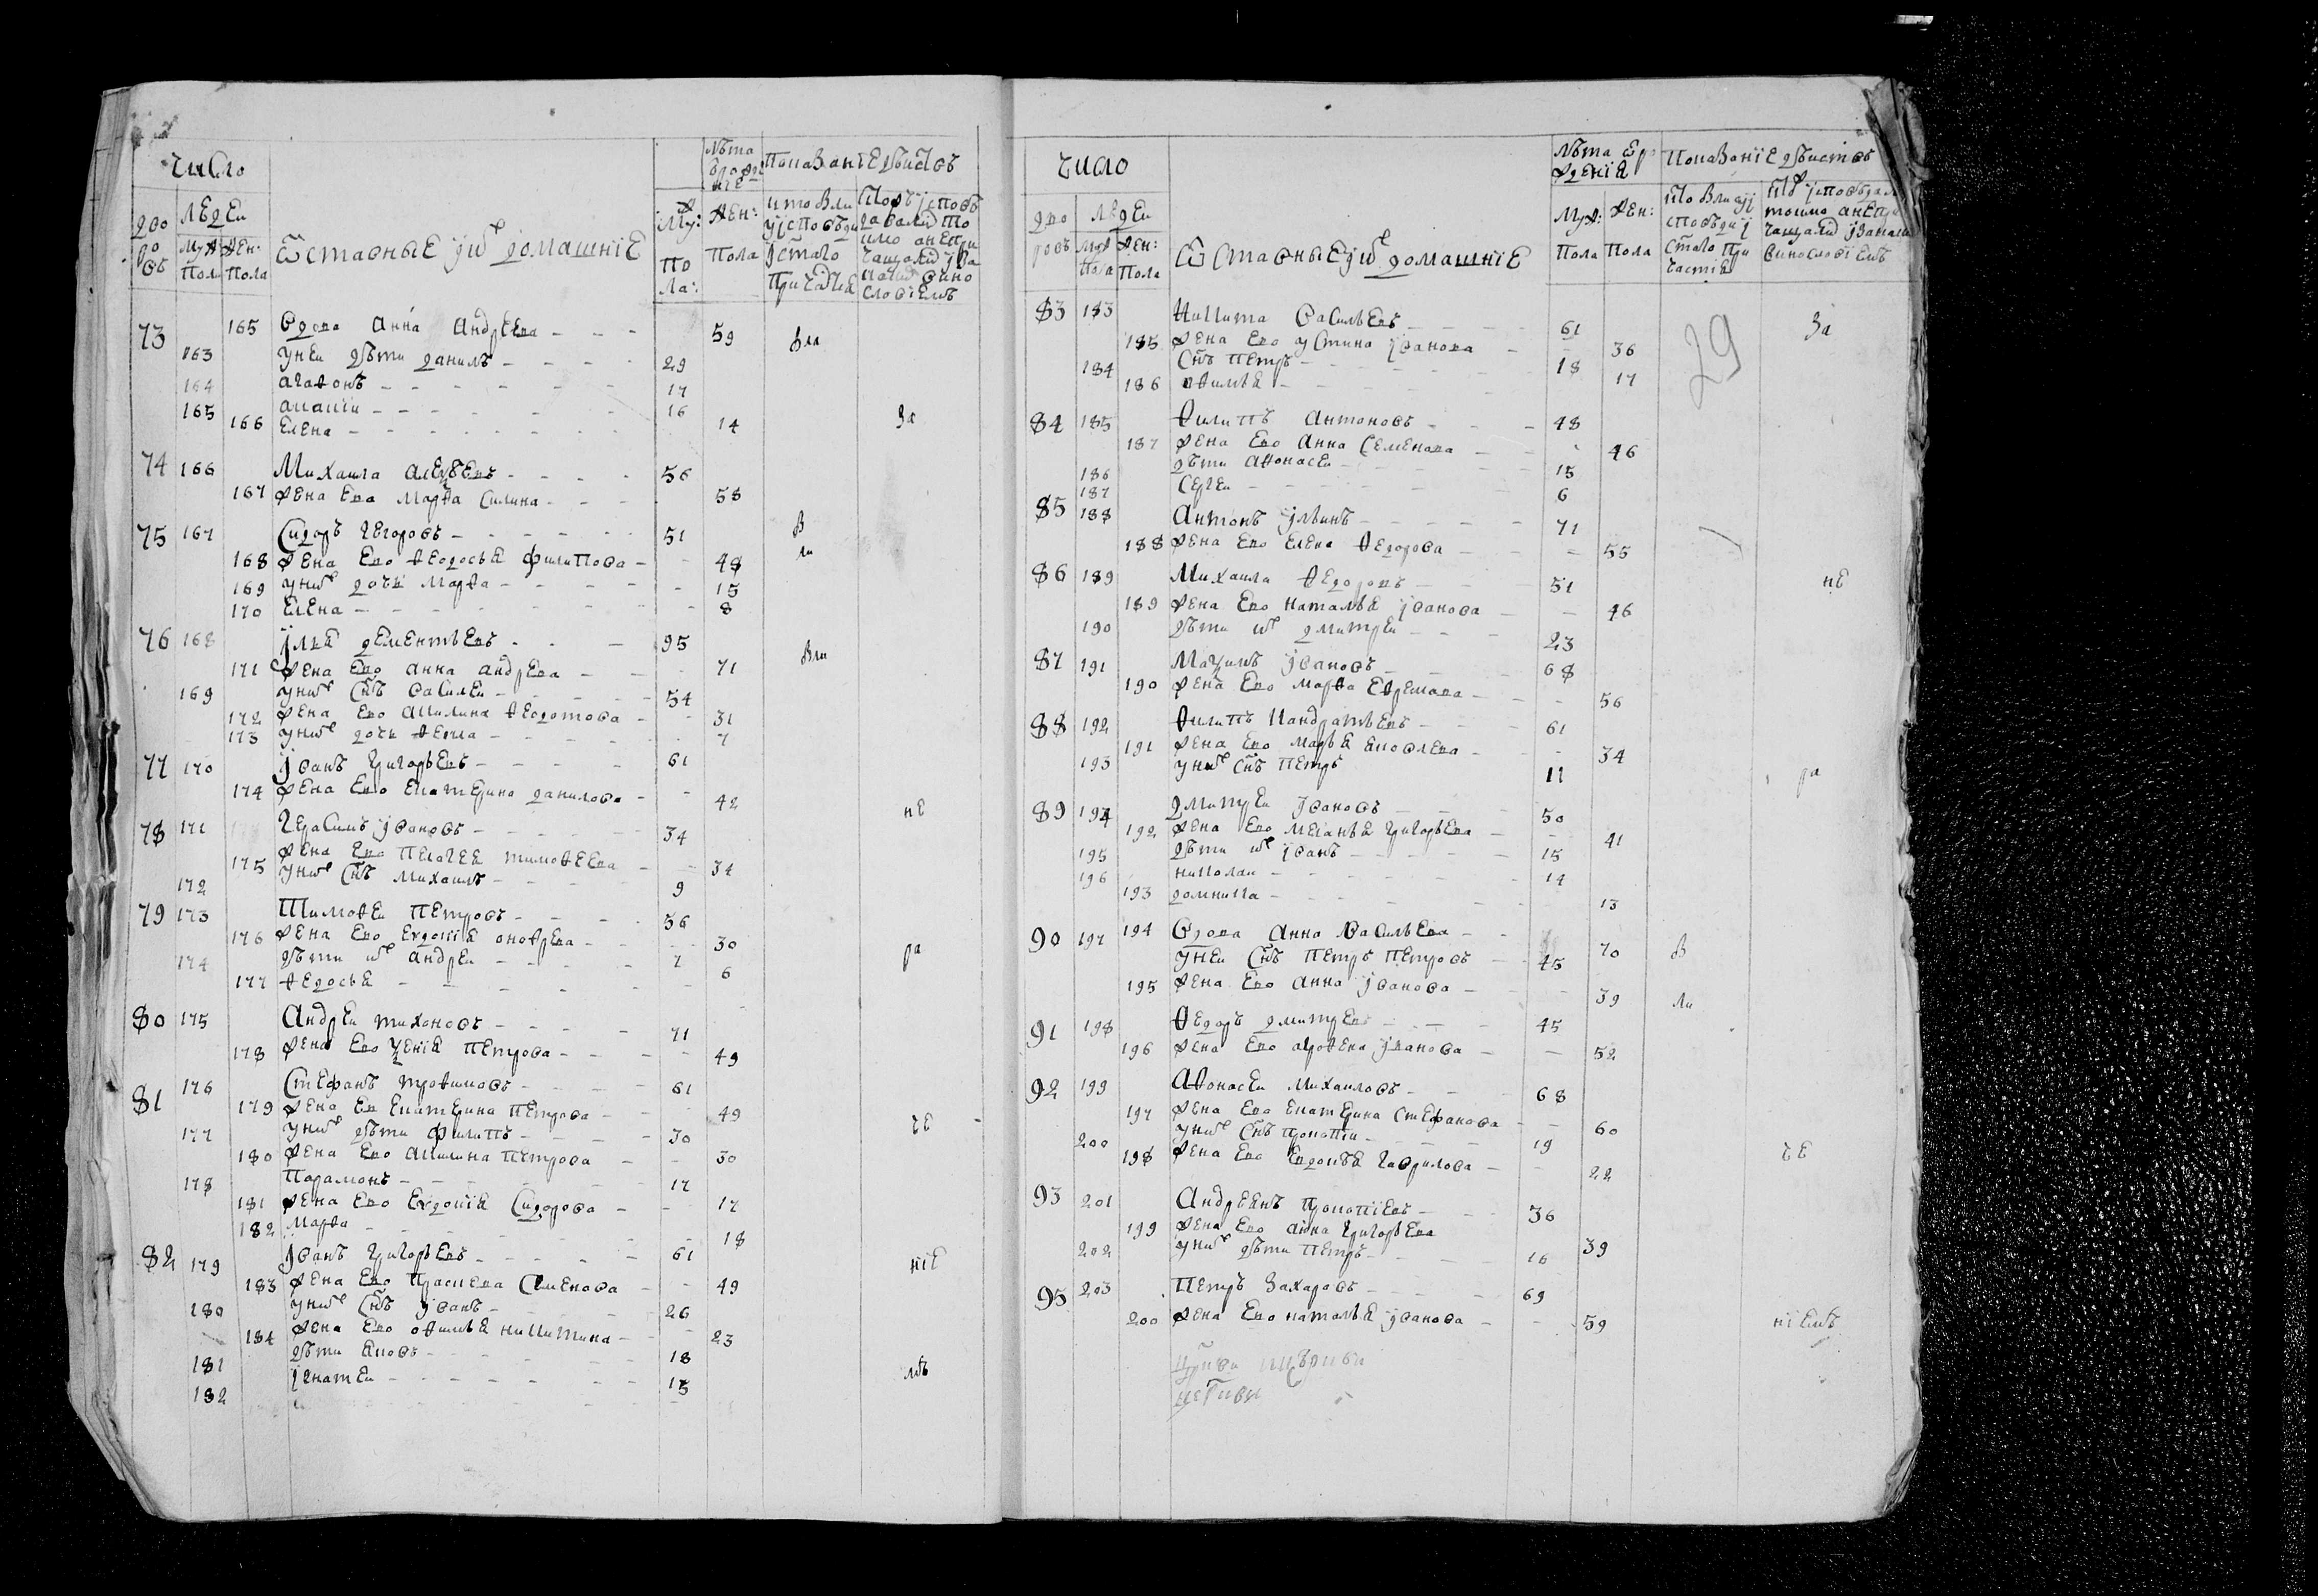 число
дво ро въ
людеи
муж: пола
жен: пола
Ѿставные ӱ ихъ домашніе
лѣта ѿ рожденіе
му: пола:
жен: пола
показаніе дѣиствъ
73 165 Вдова анна андреева - - - 59 бы
163 у неи дѣти данилъ - - - - 29
164 агафонъ - - - - - - 17
165 ананіи - - - - - 16
166 Елена - - - - - - - 14 За
74 166 Михаила алеѯѣевъ - - - - 56
167 жена Ево марфа силина - - - 58
75 167 Сидоръ Егоровъ - - - - - - 51 в
168 жена Ево федосья филипова - - 48 ли
169 у них дочь марфа - - - - - 15
170 Елена - - - - - - - - 8
76 168 Илья дементьевъ - - - 95
171 жена Ево анна андрева - - - 71 вли
169 у них снъ василеи - - - - - 54
172 жена Ево акилина федотова - - 31
173 у них дочь фекла - - - - - - 7
77 170 Іванъ григорьевъ - - - - 61
174 жена Ево екатерина данилова - - 42 не
78 171 Герасимъ івановъ - - - - - - 34
175 жена Ево пелагея тимофеева - - 34
172 у них снъ михаилъ - - - - 9
79 173 Тимофеи петровъ - - - - 56
176 жена Ево Евдокія онофрева - - - - 30 ра
174 дѣти их андреи - - - - - 7
177 федосья - - - - - - 6
80 175 Андреи тихоновъ - - - - - 71
178 жена Ево ѯенія петрова - - - - 49
81 176 Стефанъ трофимовъ - - - - 61
179 жена Ев екатерина петрова - - - 49 че
177 у них дѣти филипъ - - - - - 30
180 жена Ево акилина петрова - - 30
178 парамонъ - - - - - - 17
181 жена Ево Евдокія Сидорова - - 17
182 марфа - - - - - - - 18
82 179 Іванъ григорьевъ - - - - - 61 ніе
183 жена Ево праскева Семенова - - 49
180 у них снъ іванъ - - - - - 26
184 жена Ево офимья никитина - - 23
181 дѣти яковъ - - - - - - 18
182 ігнатеи - - - - - - - 15 мъ
число
дво ровъ
людеи
муж пола
жен: пола
Ѿставные ӱ ихъ домашніе
лѣта ѿ рожденія
муж: пола
жен: пола
показаніе дѣиствъ
29
83 183 Никита васильевъ - - - - 61 За
185 жена Ево устина іванова - - 36
184 снъ петръ - - - - - - 18
186 офимья - - - - - - 17
84 185 филипъ антоновъ - - - 48
187 жена Ево анна семенова - - - 46
186 дѣти афонасеи - - - - - 15
187 Сергеи - - - - - - 6
85 188 Антонъ ільинъ - - - - - 71
188 жена Ево Елена федорова - - 55
86 189 Михаила федоровъ - - - 51 не
189 жена Ево наталья іванова - - 46
190 дѣти их дмитреи - - - 23
87 191 Маѯимъ івановъ - - - - 68
190 жена Ево марфа Ефремова - - - 56
88 192 филипъ кандратьевъ - - - 61
191 жена Ево марья яковлева - - 34
193 у них снъ петръ 11 ра
89 194 Дмитреи івановъ - - - - 50
192 жена Ево меланья григорьева - - 41
195 дѣти их іванъ - - - - - 15
196 николаи - - - - - - 14
193 домника - - - - - - 13
90 194 Вдова анна васильева - - 70 в
197 у неи снъ петръ петровъ - - 45
195 жена Ево анна іванова - - - 39 ли
91 198 федоръ дмитревъ - - - 45
196 жена Ево агрофена іванова - - 52
92 199 Афонасеи михаиловъ - - - 68
197 жена Ево екатерина стефанова - - 60
200 у них снъ прокопіи - - - - 19
198 жена Ево Евдокія гаврилова - - 22 че
93 201 Андреянъ прокопіевъ - - - 36
199 жена Ево анна григорьева 39
202 у них дѣти петръ - - - - 16
95 203 петръ захаровъ - - - - - 69
200 жена Ево наталья іванова - - 59 ніемъ